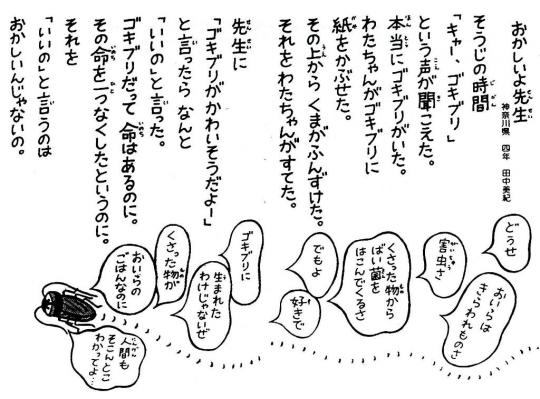 おかしいよ先生
神奈川県 四年 田中美紀
そうじの時間
「キャー、ゴキブリ」
という声が聞こえた。
本当にゴキブリがいた。
わたちゃんがゴキブリに
紙をかぶせた。
その上から くまがふんずけた。
それを わたちゃんがすてた。
先生に
「ゴキブリがかわいそうだよー」
と言ったら なんと
「いいの」と言った。
ゴキブリだって 命はあるのに。
その命を一つなくしたというのに。
それを
「いいの」と言うのは
おかしいんじゃないの。
どうせ
おいらは
きらわれものさ
害虫さ
くさった物から
ばい菌を
はこんでくるさ
でもよ
好きで
ゴキブリに
生まれた
わけじゃないぜ
くさった物が
おいらの
ごはんなのに
人間も
そこんとこ
わかってよ…